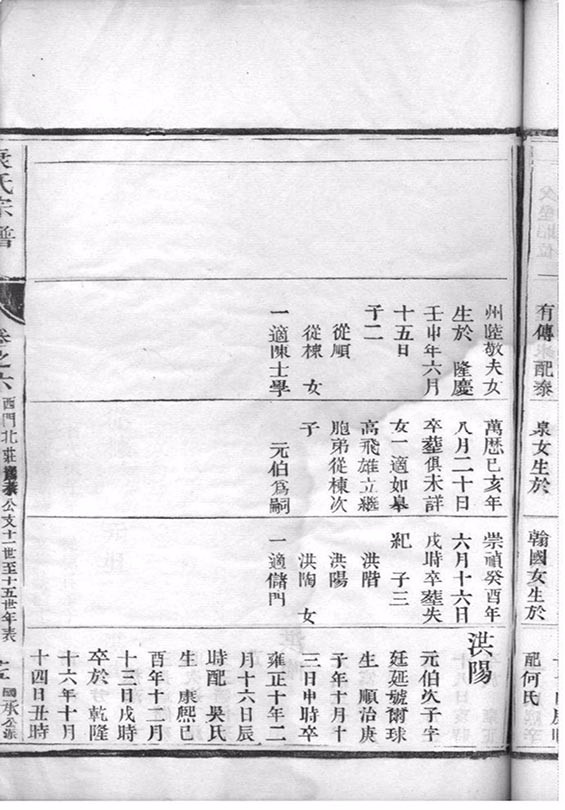 有傳 配泰
泉女生於
翰國女生於
配何氏
州陸敬夫女
生於 隆慶
壬申年六月
十五日
子二
從順
從棟 女
一適陳士學
萬歷己亥年
八月二十日
卒塟俱未詳
女一適如皋
高飛雄立繼
胞弟從棟次
子
元伯爲嗣
崇禎癸酉年
六月十六日
戌時卒塟失
紀 子三
洪階
洪陽
洪陶 女
一適儲門
洪陽
元伯次子字
廷延號爾球
生 順治庚
子年十月十
三日申時卒
雍正十年二
月十六日辰
時配 吳氏
生 康熙己
酉年十二月
十三日戌時
卒於 乾隆
十六年十月
十四日丑時
袁氏宗譜
卷之六
西門北莊
公支十一世至十五世年表